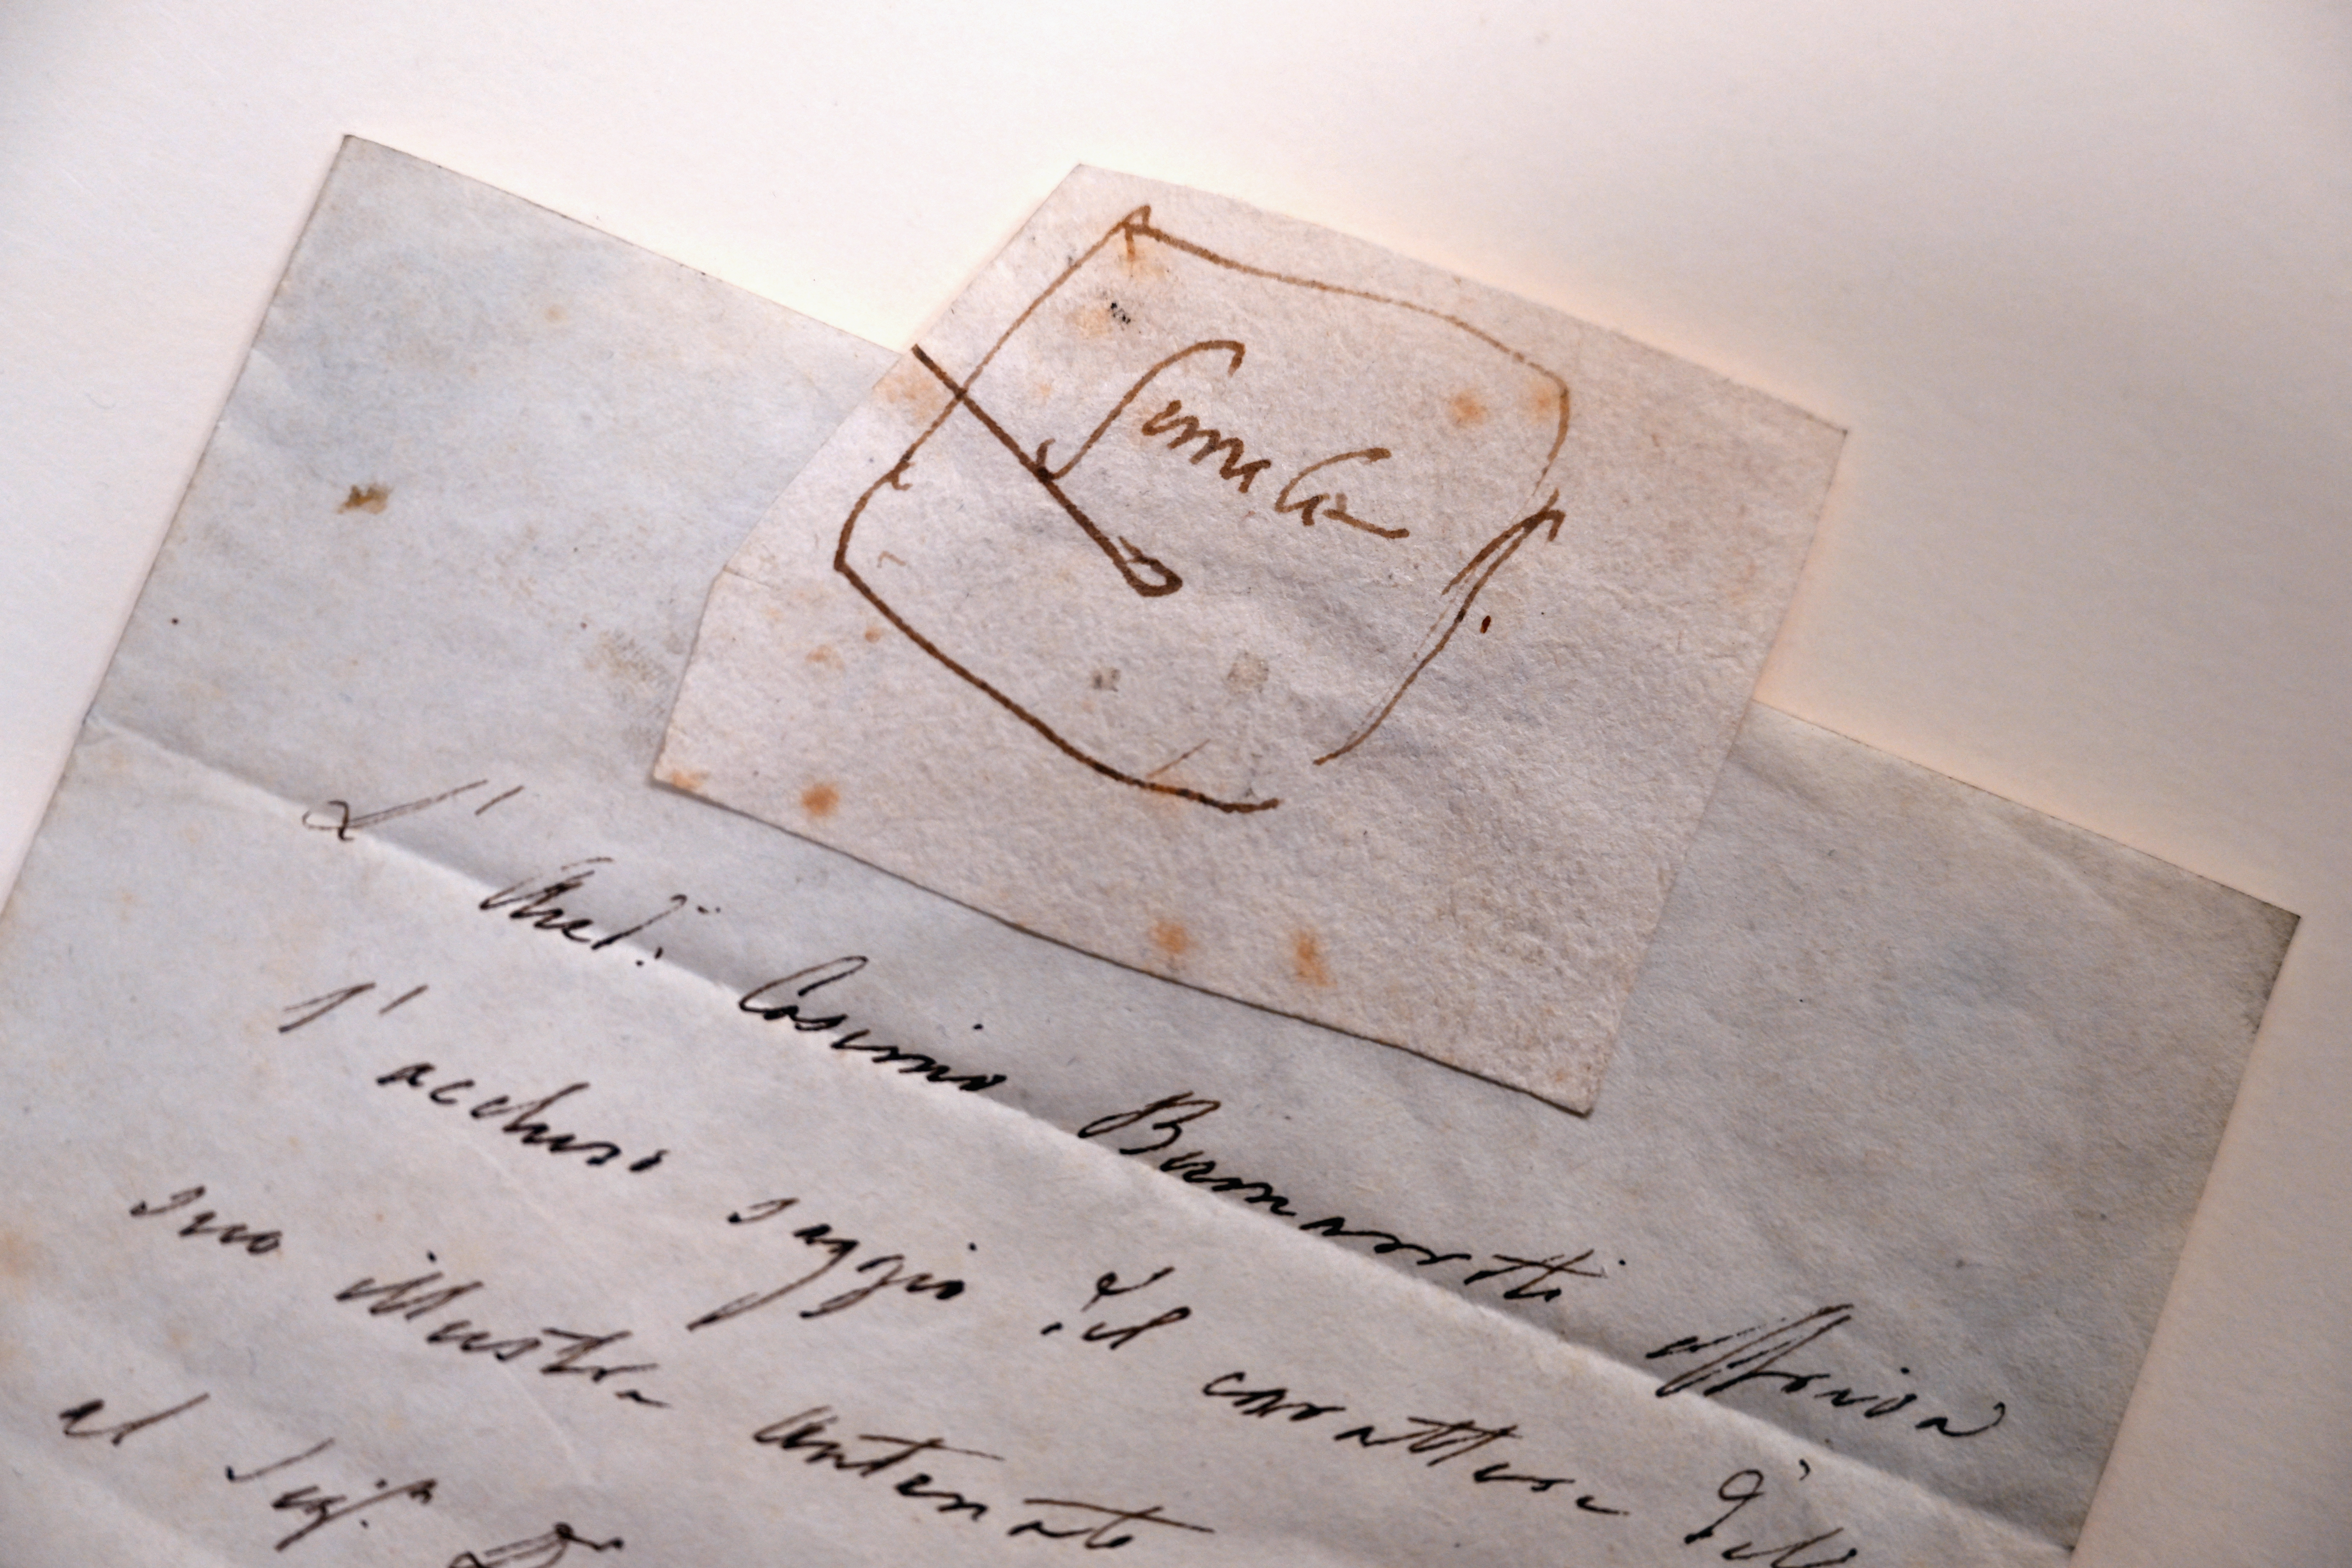 L'Aud:
Cosimo Buonarroti offriva
l'accluso saggio del carattere dell
suo illustre antenato
al Sig.r D